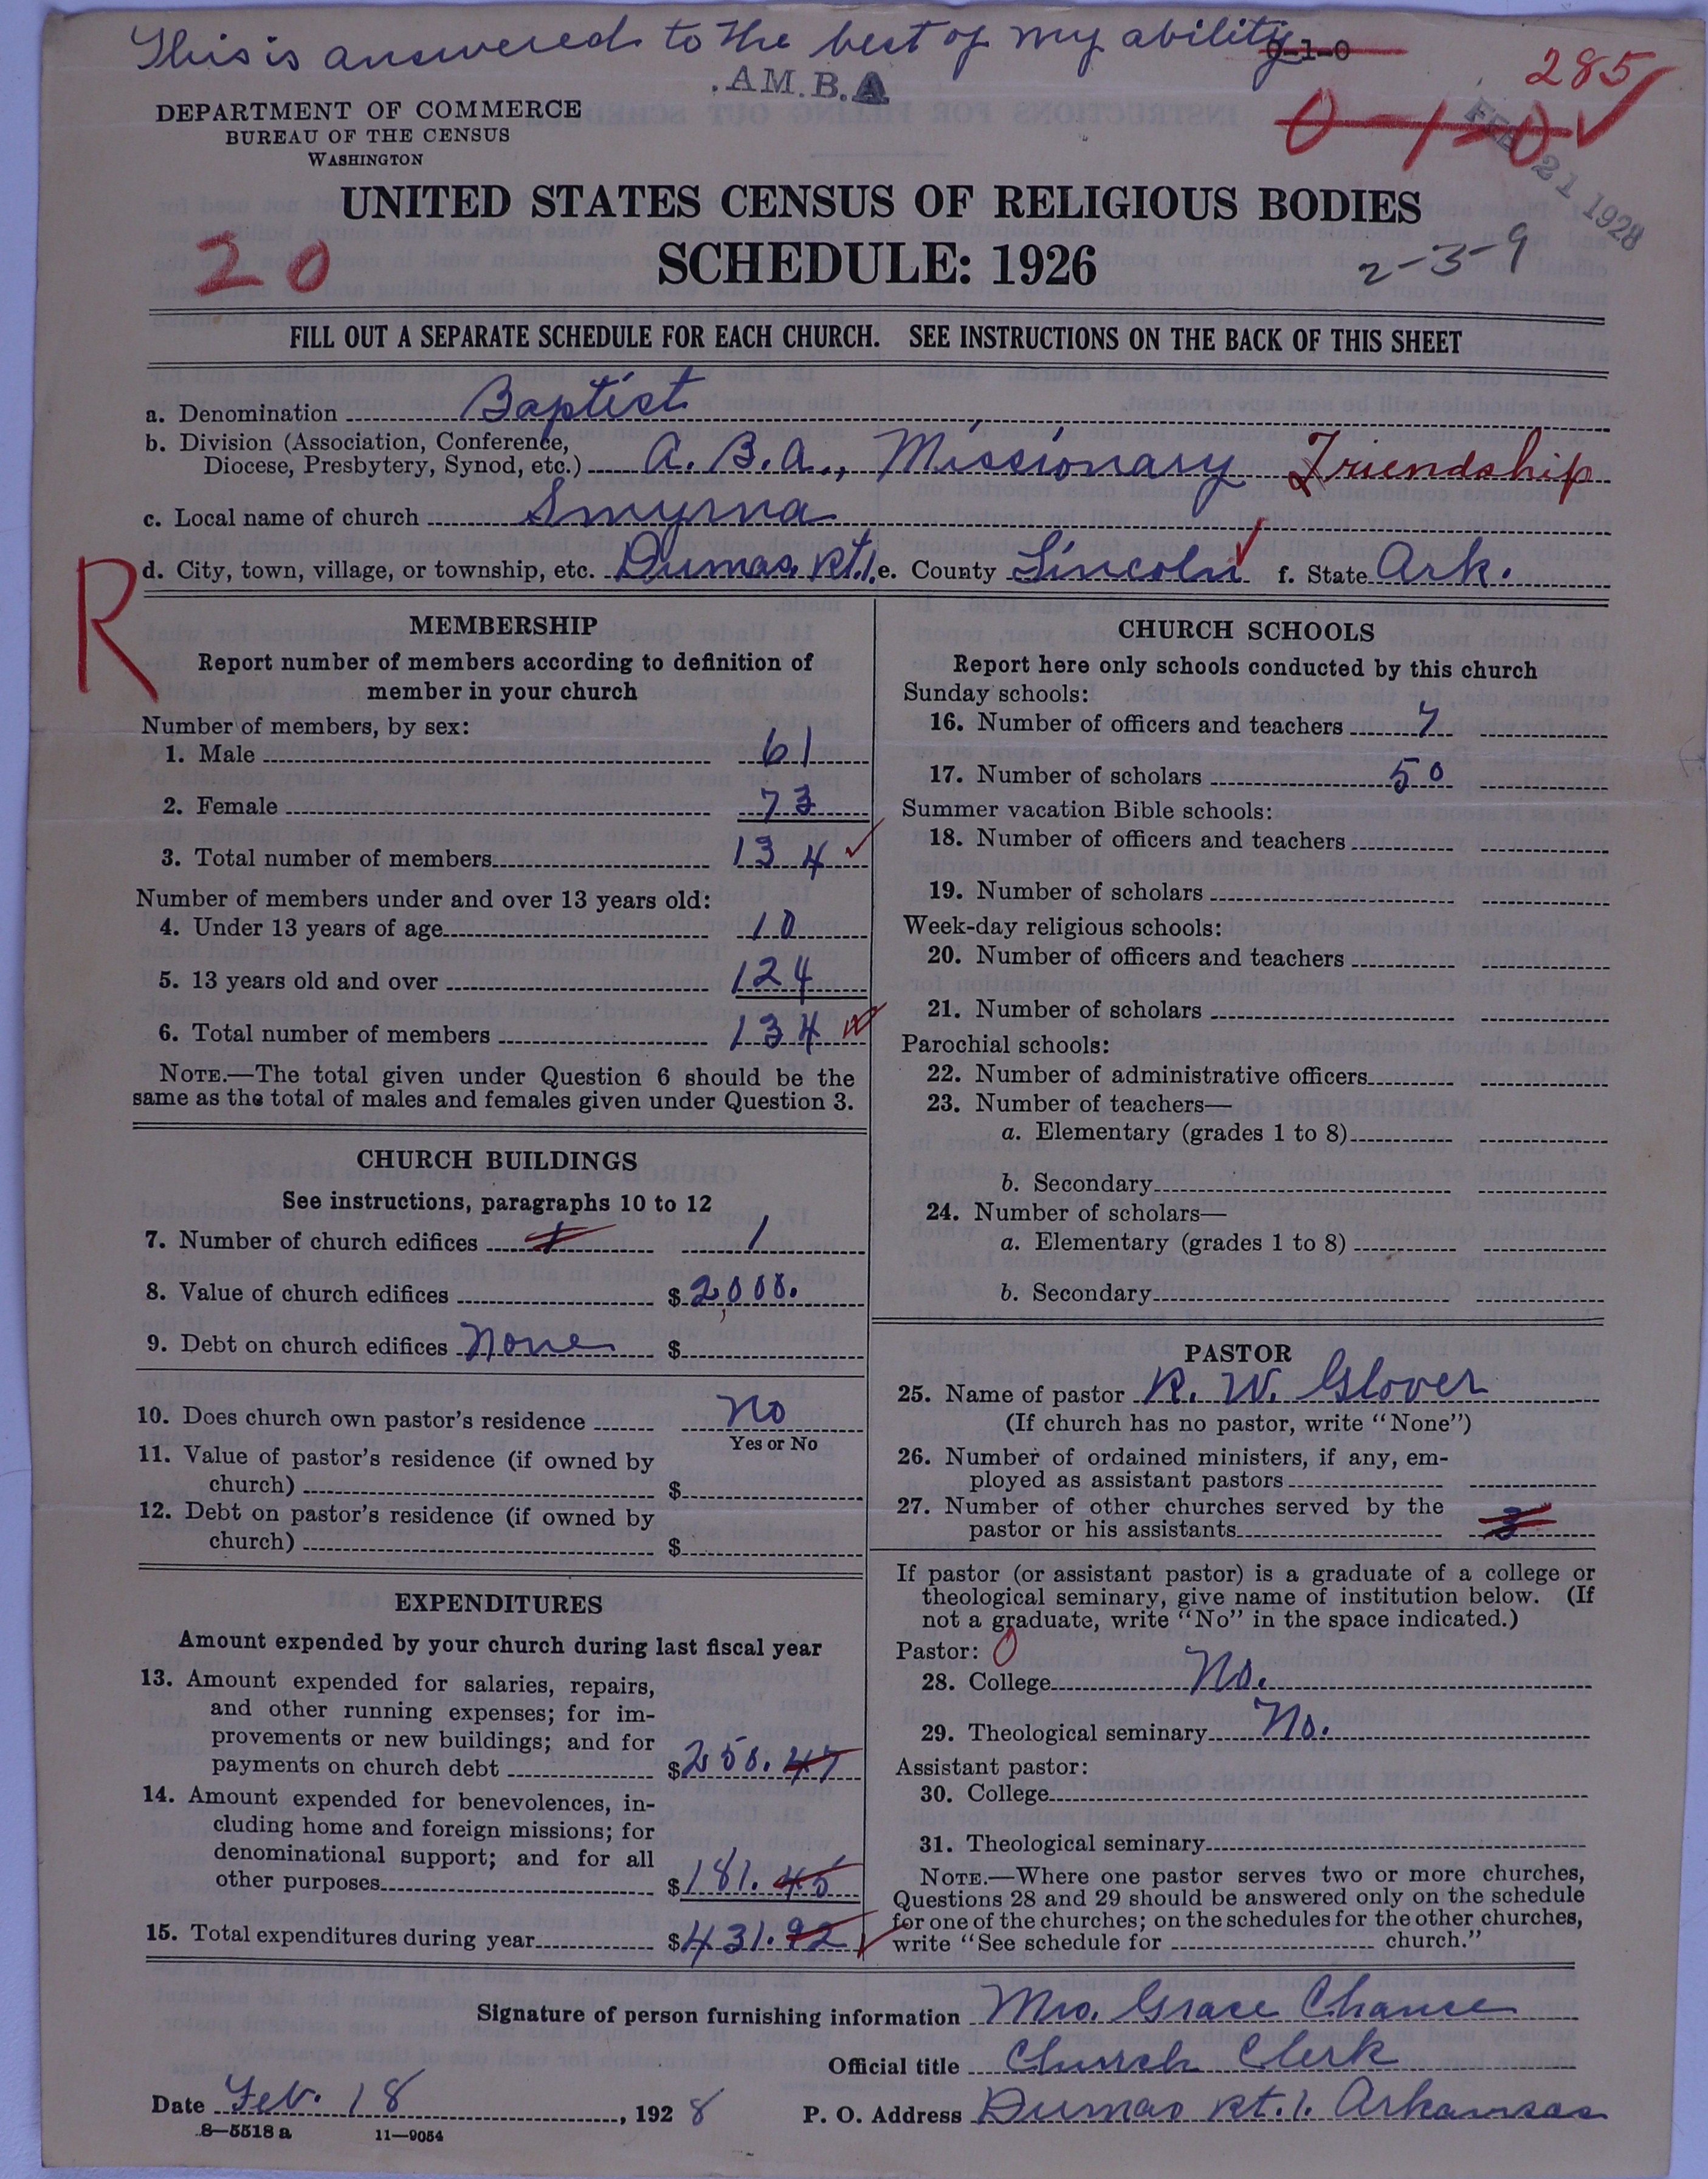 This is answered to the best of my ability
0-1-0
.AM.B.A
285
0-1-0
FEB 21 1928
DEPARTMENT OF COMMERCE
BUREAU OF THE CENSUS
WASHINGTON
UNITED STATES CENSUS OF RELIGIOUS BODIES
20
SCHEDULE: 1926
2-3-9
FILL OUT A SEPARATE SCHEDULE FOR EACH CHURCH. SEE INSTRUCTIONS ON THE BACK OF THIS SHEET
a. Denomination Baptist
b. Division (Association, Conference,
Diocese, Presbytery, Synod, etc.) A. B. A., Missionary Friendship
c. Local name of church Smyrna
d. City, town, village, or township, etc. Dumas, Rt. 1. e. County Lincoln f. State Ark.
R
MEMBERSHIP
Report number of members according to definition of
member in your church
Number of members, by sex:
1. Male 61
2. Female 73
3. Total number of members 134
Number of members under and over 13 years old:
4. Under 13 years of age 10
5. 13 years old and over 124
6. Total number of members 134
NOTE.—The total given under Question 6 should be the
same as the total of males and females given under Question 3.
CHURCH BUILDINGS
See instructions, paragraphs 10 to 12
7. Number of church edifices 1 1
8. Value of church edifices $2,000.
9. Debt on church edifices None $
10. Does church own pastor's residence No
Yes or No
11. Value of pastor's residence (if owned by
church) $
12. Debt on pastor's residence (if owned by
church) $
EXPENDITURES
Amount expended by your church during last fiscal year
13. Amount expended for salaries, repairs,
and other running expenses; for im-
provements or new buildings; and for
payments on church debt $250.47
14. Amount expended for benevolences, in-
cluding home and foreign missions; for
denominational support; and for all
other purposes $181.45
15. Total expenditures during year $431.92
CHURCH SCHOOLS
Report here only schools conducted by this church
Sunday schools:
16. Number of officers and teachers 7
17. Number of scholars 50
Summer vacation Bible schools:
18. Number of officers and teachers
19. Number of scholars
Week-day religious schools:
20. Number of officers and teachers
21. Number of scholars
Parochial schools:
22. Number of administrative officers
23. Number of teachers—
a. Elementary (grades 1 to 8)
b. Secondary
24. Number of scholars—
a. Elementary (grades 1 to 8)
b. Secondary
PASTOR
25. Name of pastor R. W. Glover
(If church has no pastor, write "None")
26. Number of ordained ministers, if any, em-
ployed as assistant pastors
27. Number of other churches served by the
pastor or his assistants 3
If pastor (or assistant pastor) is a graduate of a college or
theological seminary, give name of institution below. (If
not a graduate, write "No" in the space indicated.)
Pastor: 0
28. College No.
29. Theological seminary No.
Assistant pastor:
30. College
31. Theological seminary
NOTE.—Where one pastor serves two or more churches,
Questions 28 and 29 should be answered only on the schedule
for one of the churches; on the schedules for the other churches,
write "See schedule for church."
Signature of person furnishing information Mrs. Grace Chance
Official title Church Clerk
Date Feb. 18, 1928
P. O. Address Dumas Rt. 1. Arkansas
8—5518 a 11—9054